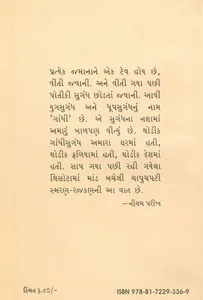 પ્રત્યેક જમાનાને એક ટેવ હોય છે,
વીતી જવાની. અને વીતી ગયા પછી
પોતીકી સુગંધ છોડતાં જવાની. આવી
યુગસુગંધ અને ધૂપસુગંધનું નામ
'ગાંધી' છે. એ સુગંધના નશામાં
અમારું બાળપણ વીત્યું છે. થોડીક
ગાંધીસુગંધ અમારા ઘરમાં હતી,
થોડીક ફળિયામાં હતી, થોડીક દેશમાં
હતી. સાપ ગયા પછી રહી ગયેલા
લિસોટામાં માંડ બચેલી ચાપુચપટી
સ્મરણ-રજકણની આ વાત છે.
– નીલમ પરીખ
કિંમત રૂ. ૬૦/-
ISBN 978-81-7229-336-9